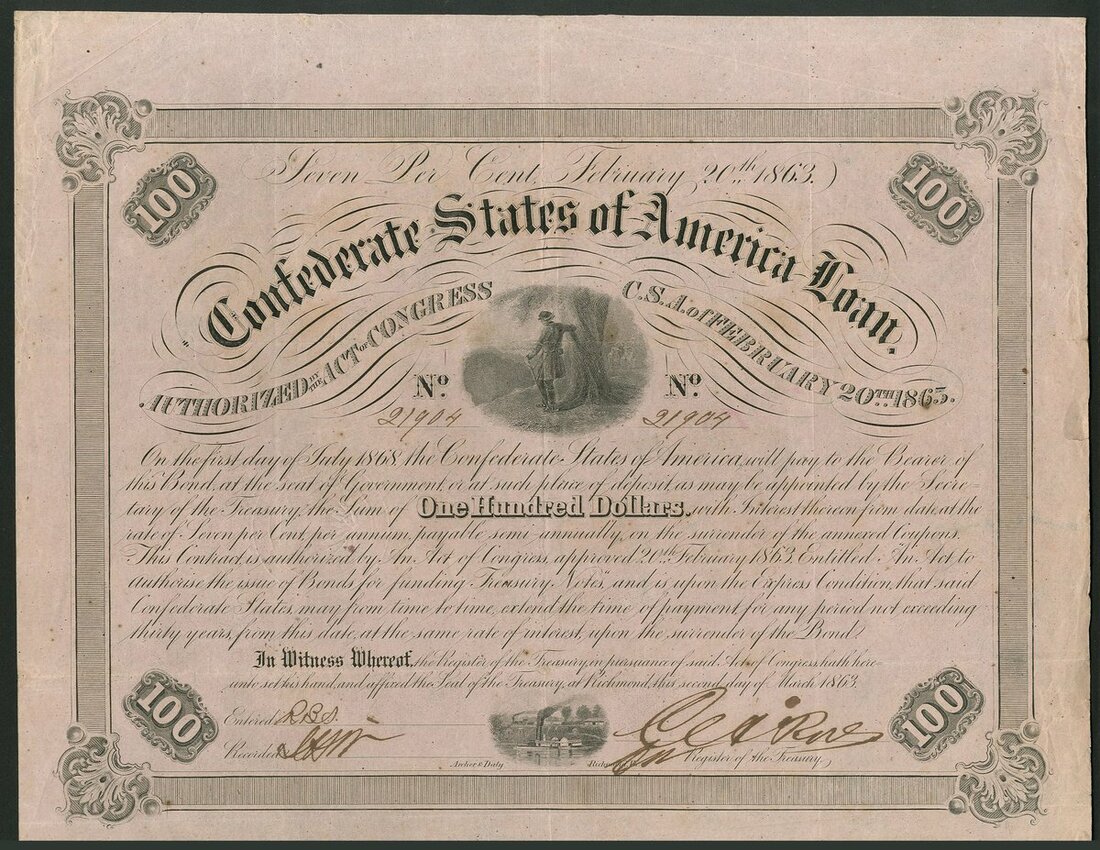 100
Seven Per Cent, February 20th 1863.
100
Confederate States of America Loan.
AUTHORIZED BY THE ACT OF CONGRESS C.S.A. of FEBRUARY 20TH 1863.
No. No.
21904 21904
On the first day of July 1868, the Confederate States of America, will pay to the Bearer of
this Bond, at the seat of Government, or at such place of deposit, as may be appointed by the Secre-
tary of the Treasury, the Sum of One Hundred Dollars, with Interest thereon from date, at the
rate of Seven per Cent, per annum, payable semi-annually, on the surrender of the annexed Coupons.
This Contract, is authorized by An Act of Congress, approved 20th February 1863. Entitled An Act to
authorise the issue of Bonds for funding Treasury Notes, and is upon the Express Condition, that said
Confederate States, may from time to time, extend the time of payment, for any period not exceeding
thirty years, from this date, at the same rate of interest, upon the surrender of the Bond.
In Witness Whereof, the Register of the Treasury, in pursuance of said Act of Congress, hath here-
unto set his hand, and affixed the Seal of the Treasury, at Richmond, this second, day of March 1863.
100
Entered R.B.S.
Recorded
Archer & Daly
Register of the Treasury.
100